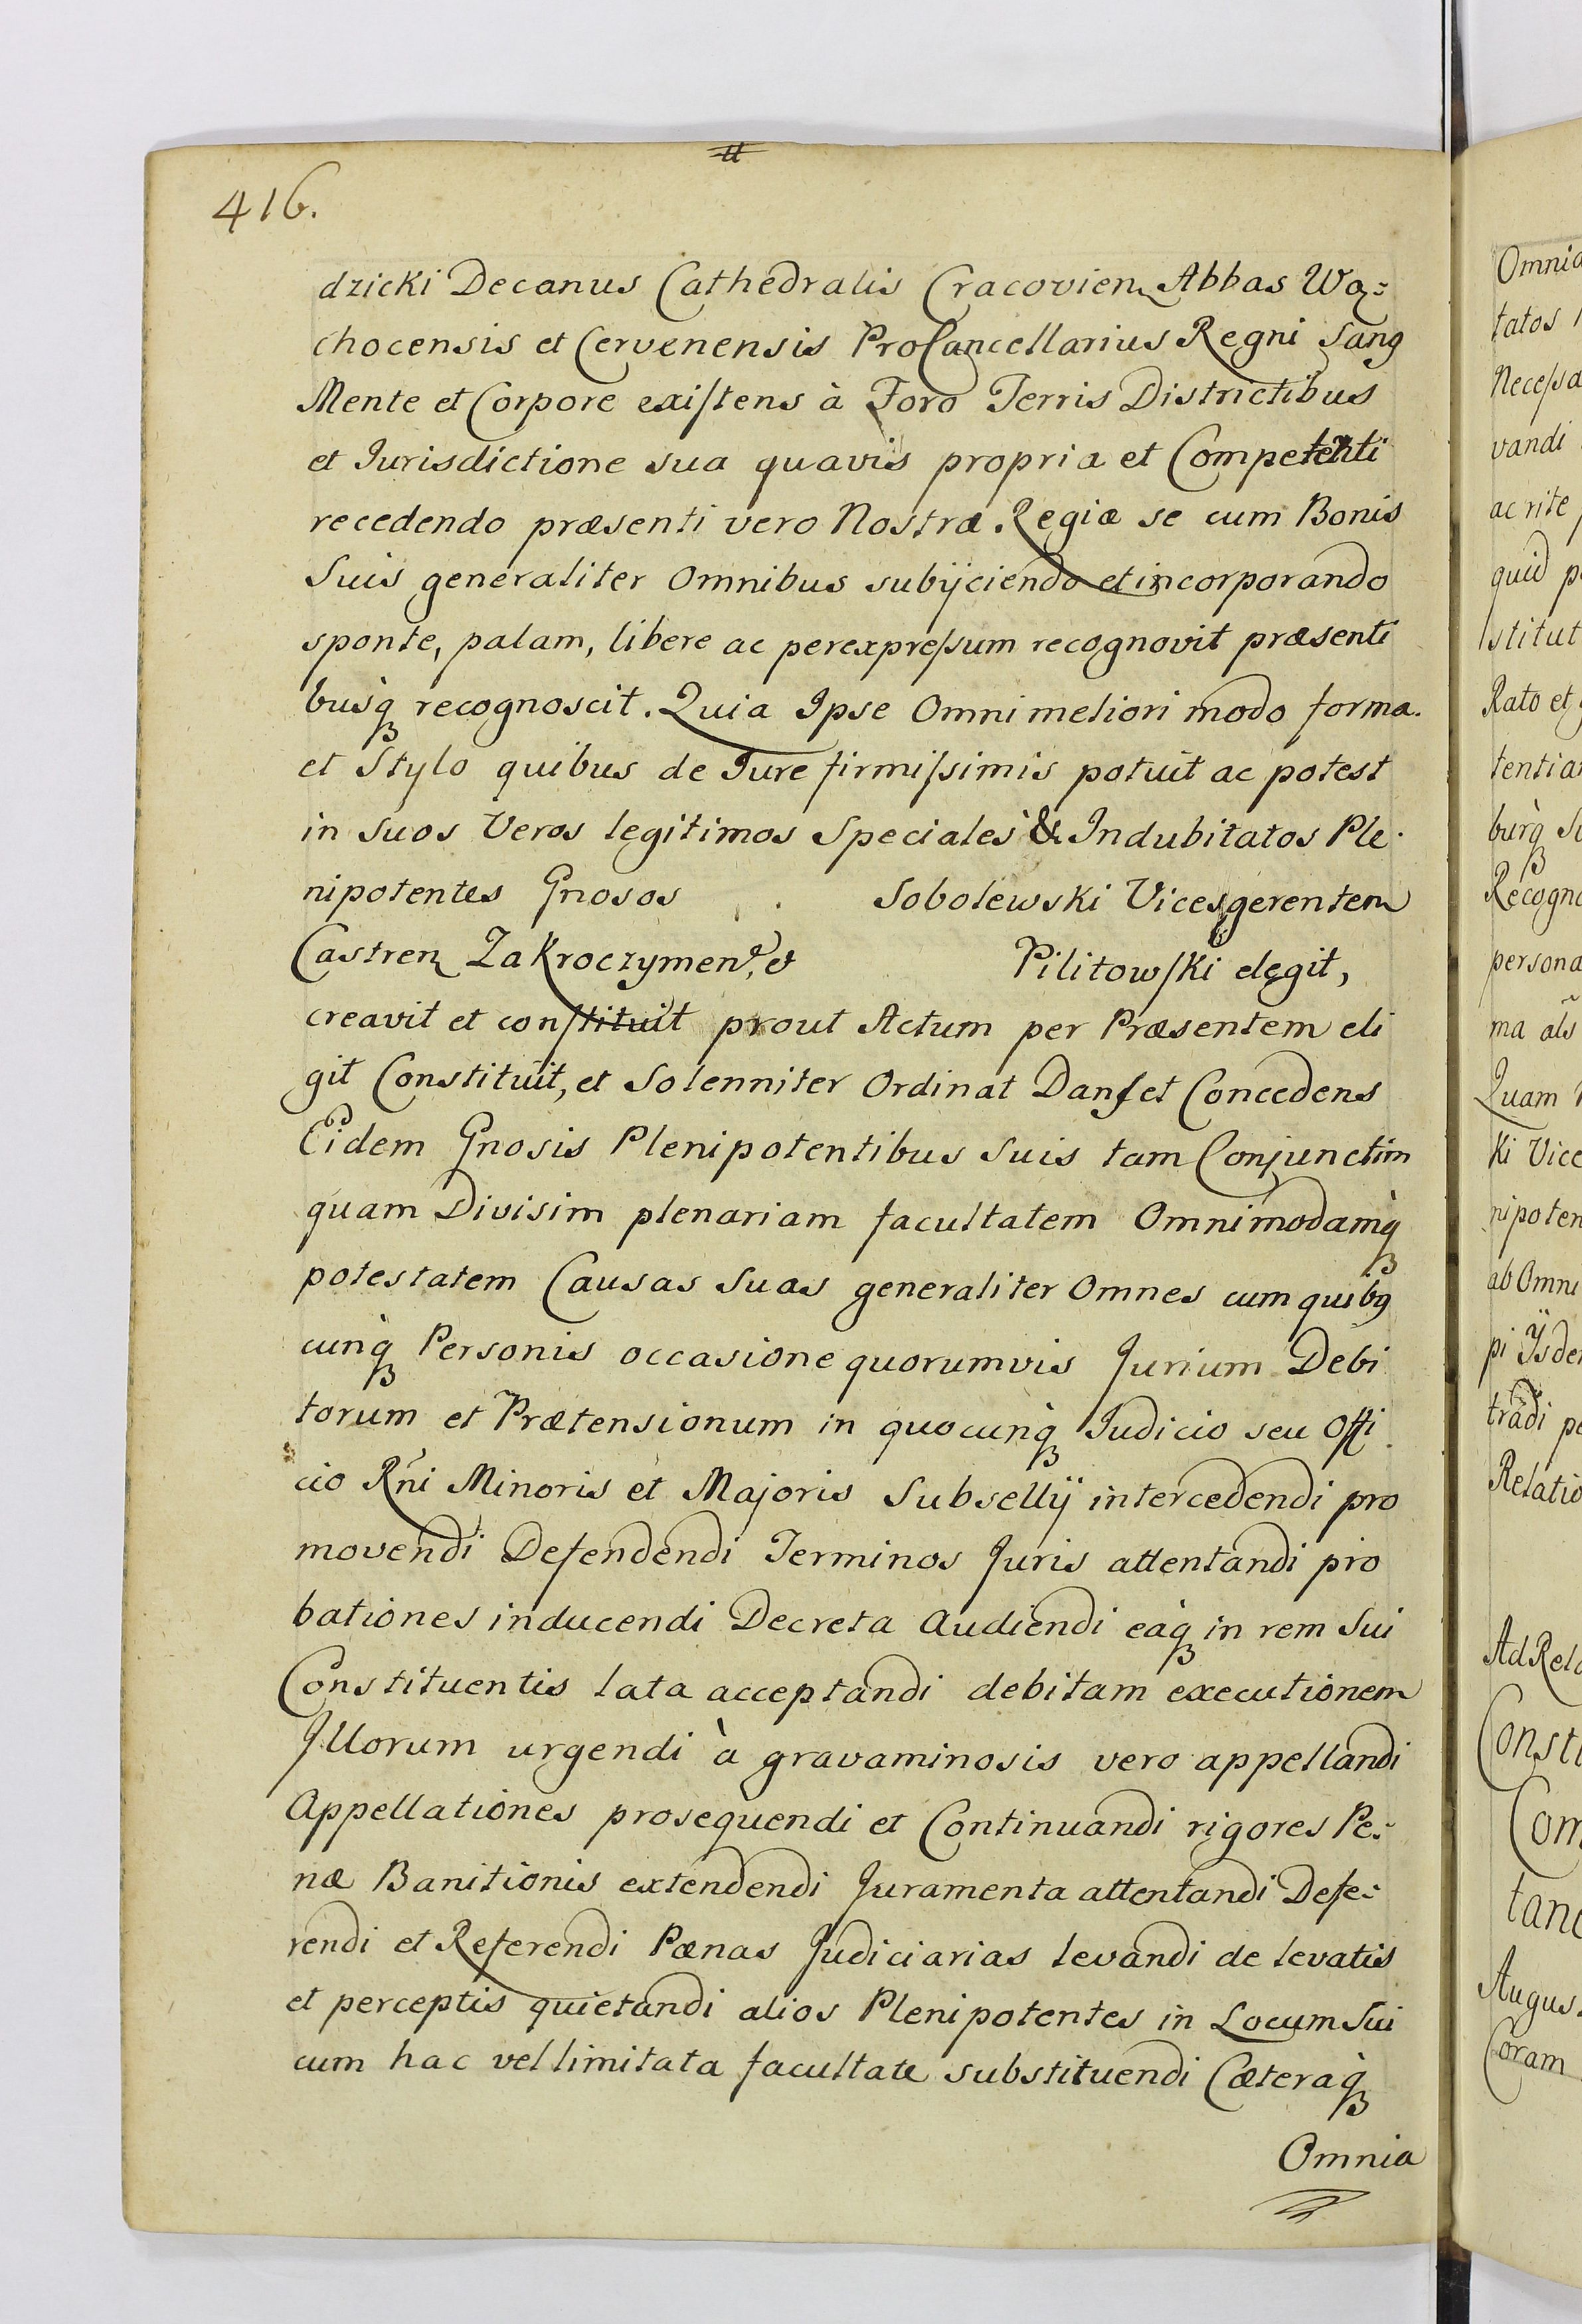 416.
dzicki Decanus Cathedralis Cracovien Abbas Wą=
chocensis et Cervenensis ProCancellarius Regni Sang
Mente et Corpore existens à Foro Terris Districtibus
et Jurisdictione sua quavis propria et Competenti
recedendo præsenti vero Nostræ Regiæ se cum Bonis
Suis generaliter Omnibus subijciendo et incorporando
sponte, palam, libere ac perexpressum recognovit præsenti
busq recognoscit. Quia Ipse Omni meliori modo forma.
et Stylo quibus de Jure firmissimis potuit ac potest
in Suos Veros legitimos Speciales & Indubitatos Ple-
nipotentes Gnosos Sobolewski Vicesgerentem
Castren Zakroczymen, & Pilitowski elegit,
creavit et constituit prout Actum per Præsentem eli
git Constituit, et Solenniter Ordinat Dans et Concedens
Eidem Gnosis Plenipotentibus Suis tam Conjunctim
quam Divisim plenariam facultatem Omnimodamq
potestatem Causas Suas generaliter Omnes cum quibg
cunq Personis occasione quorumvis Jurium Debi
torum et Prætensionum in quocunq Judicio seu Offi
cio Rñi Minoris et Majoris Subsellij intercedendi pro
movendi Defendendi Terminos Juris attentandi pro
bationes inducendi Decreta Audiendi eaq in rem Sui
Constituentis lata acceptandi debitam executionem
Illorum urgendi à gravaminosis vero appellandi
Appellationes prosequendi et Continuandi rigores Pe=
næ Banitionis extendendi Juramenta attentandi Defe=
rendi et Referendi Pænas Judiciarias levandi de levatis
et perceptis quietandi alios Plenipotentes in Locum Sui
cum hac vel limitata facultate substituendi Cæteraq
Omnia
Omnia
tatos
Necessa
vandi
ac rite
quid p
stitut
Rato et
tentia
burq
Recogno
persona
ma als
Quam
ki Vice
nipoten
ab Omni
pi Ijsde
tradi pe
Relatio
Ad Rela
Consti
Com
tan
Augus
Coram